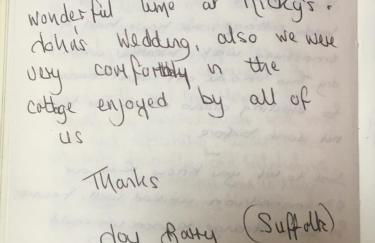 wonderful time at Nicky's &
John's Wedding, also we were
very comfortably in the
cottage enjoyed by all of
us
Thanks
Joy (Suffolk)